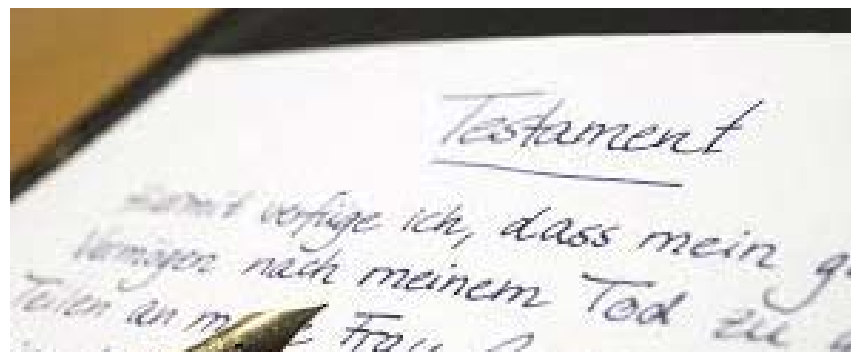 Testament
Hiermit verfüge ich, dass mein
Vermögen nach meinem Tod zu
Teilen an Frau